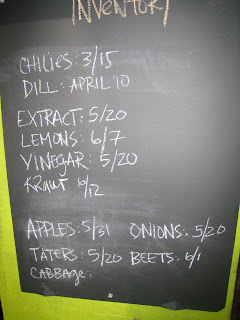 INVENTORY
CHILIES: 3/15
DILL: APRIL '10
EXTRACT: 5/20
LEMONS: 6/7
VINEGAR: 5/20
KRAUT 10/12
APPLES: 5/31 ONIONS: 5/20
TATERS: 5/20 BEETS: 6/1
CABBAGE: